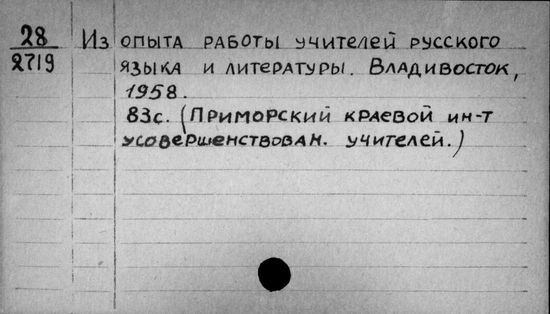 28 Из опыта работы учителей русского
2719 языка и литературы. Владивосток,
1958.
83с. (Приморский краевой ин-т
усовершенствован. учителей.)